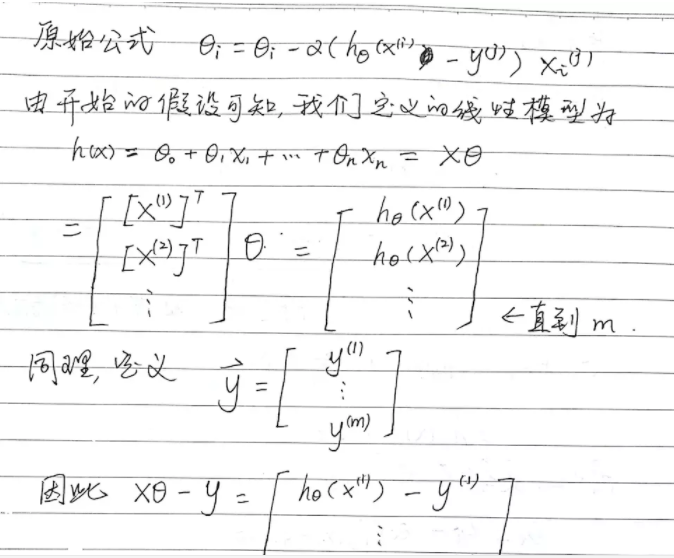 原始公式 θi = θi - α(hθ(x⁽ⁱ⁾) - y⁽ʲ⁾) xi⁽ʲ⁾
由开始的假设可知, 我们定义的线性模型为
h(x) = θ₀ + θ₁x₁ + ⋯ + θnxn = Xθ
= [ [X⁽¹⁾]ᵀ [X⁽²⁾]ᵀ ⋮ ] θ = [ hθ(x⁽¹⁾) hθ(x⁽²⁾) ⋮ ] ← 直到 m.
同理, 定义 y⃗ = [ y⁽¹⁾ ⋮ y⁽ᵐ⁾ ]
因此 Xθ - y = [ hθ(x⁽¹⁾) - y⁽¹⁾ ⋮ ]